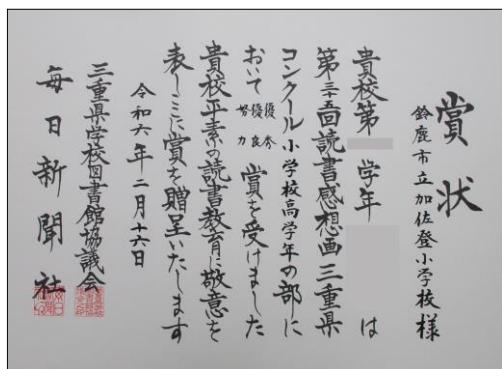 賞状
鈴鹿市立加佐登小学校様
貴校第 学年 は
第三十五回読書感想画三重県
コンクール小学校高学年の部に
おいて優秀優良努力賞を受けました
貴校平素の読書教育に敬意を
表しここに賞を贈呈いたします
令和六年二月十六日
三重県学校図書館協議会
毎日新聞社